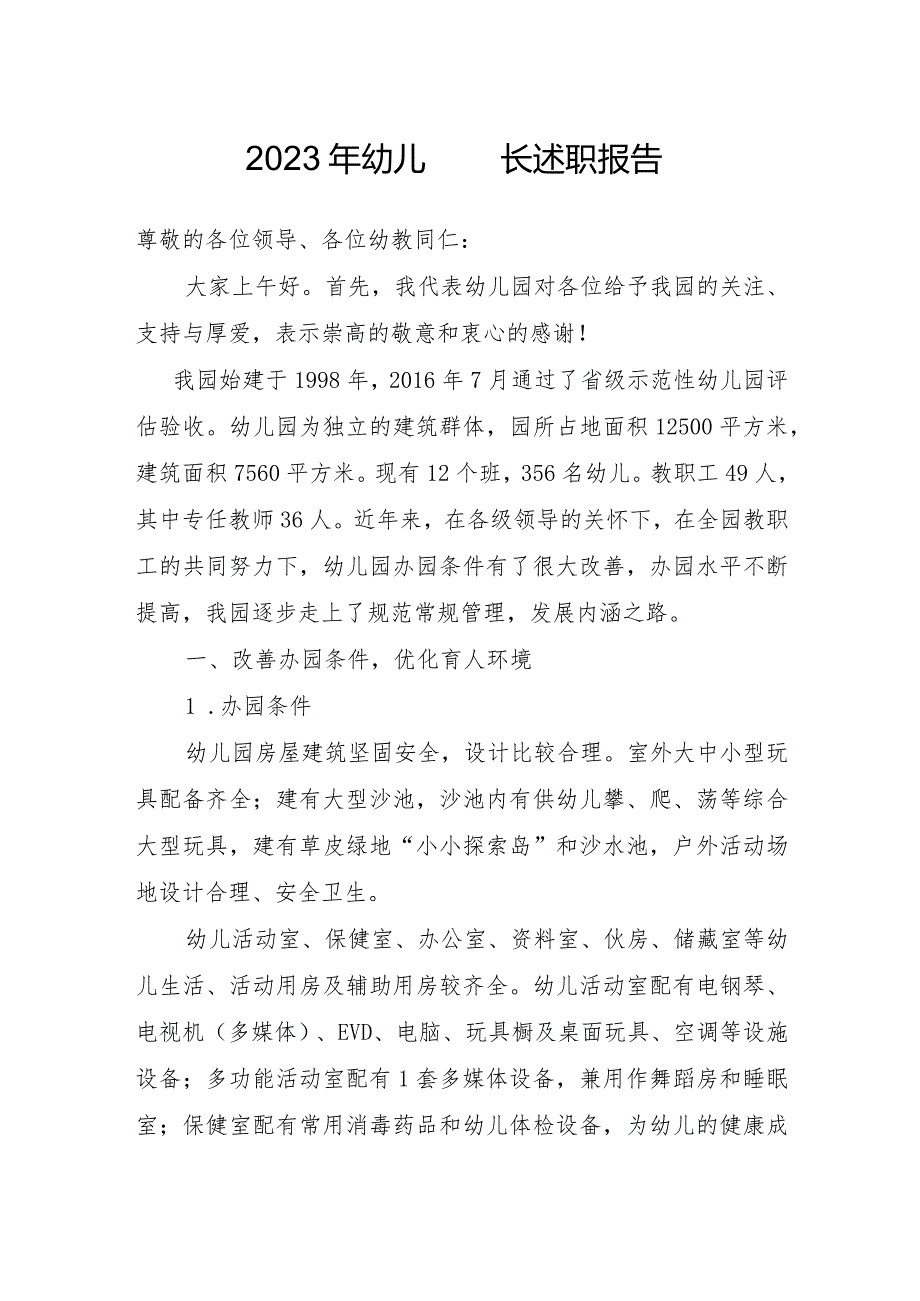 2023年幼儿　　长述职报告
尊敬的各位领导、各位幼教同仁：
大家上午好。首先，我代表幼儿园对各位给予我园的关注、
支持与厚爱，表示崇高的敬意和衷心的感谢！
我园始建于1998年，2016年7月通过了省级示范性幼儿园评
估验收。幼儿园为独立的建筑群体，园所占地面积12500平方米，
建筑面积7560平方米。现有12个班，356名幼儿。教职工49人，
其中专任教师36人。近年来，在各级领导的关怀下，在全园教职
工的共同努力下，幼儿园办园条件有了很大改善，办园水平不断
提高，我园逐步走上了规范常规管理，发展内涵之路。
一、改善办园条件，优化育人环境
1 .办园条件
幼儿园房屋建筑坚固安全，设计比较合理。室外大中小型玩
具配备齐全；建有大型沙池，沙池内有供幼儿攀、爬、荡等综合
大型玩具，建有草皮绿地“小小探索岛”和沙水池，户外活动场
地设计合理、安全卫生。
幼儿活动室、保健室、办公室、资料室、伙房、储藏室等幼
儿生活、活动用房及辅助用房较齐全。幼儿活动室配有电钢琴、
电视机（多媒体）、EVD、电脑、玩具橱及桌面玩具、空调等设施
设备；多功能活动室配有1套多媒体设备，兼用作舞蹈房和睡眠
室；保健室配有常用消毒药品和幼儿体检设备，为幼儿的健康成